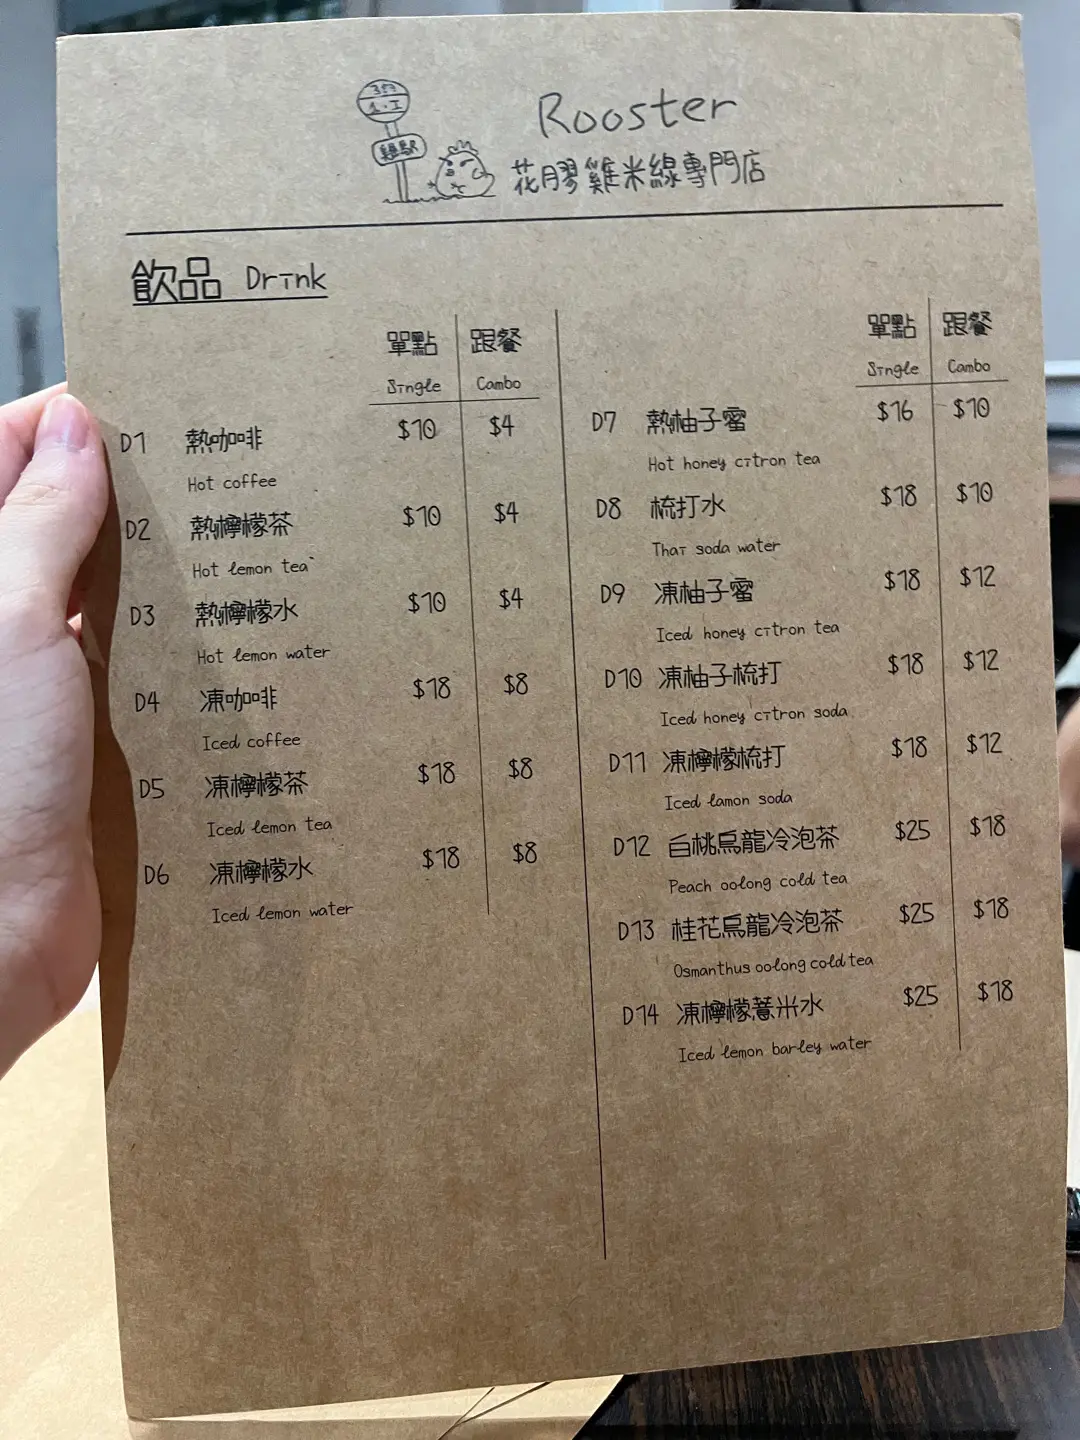 Rooster
花膠雞米線專門店
雞駅
飲品 Drink
單點 跟餐
Single Cambo
D1 熱咖啡 $10 $4
Hot coffee
D2 熱檸檬茶 $10 $4
Hot lemon tea
D3 熱檸檬水 $10 $4
Hot lemon water
D4 凍咖啡 $18 $8
Iced coffee
D5 凍檸檬茶 $18 $8
Iced lemon tea
D6 凍檸檬水 $18 $8
Iced lemon water
單點 跟餐
Single Cambo
D7 熱柚子蜜 $16 $10
Hot honey citron tea
D8 梳打水 $18 $10
Thai soda water
D9 凍柚子蜜 $18 $12
Iced honey citron tea
D10 凍柚子梳打 $18 $12
Iced honey citron soda
D11 凍檸檬梳打 $18 $12
Iced lamon soda
D12 白桃烏龍冷泡茶 $25 $18
Peach oolong cold tea
D13 桂花烏龍冷泡茶 $25 $18
Osmanthus oolong cold tea
D14 凍檸檬薏米水 $25 $18
Iced lemon barley water